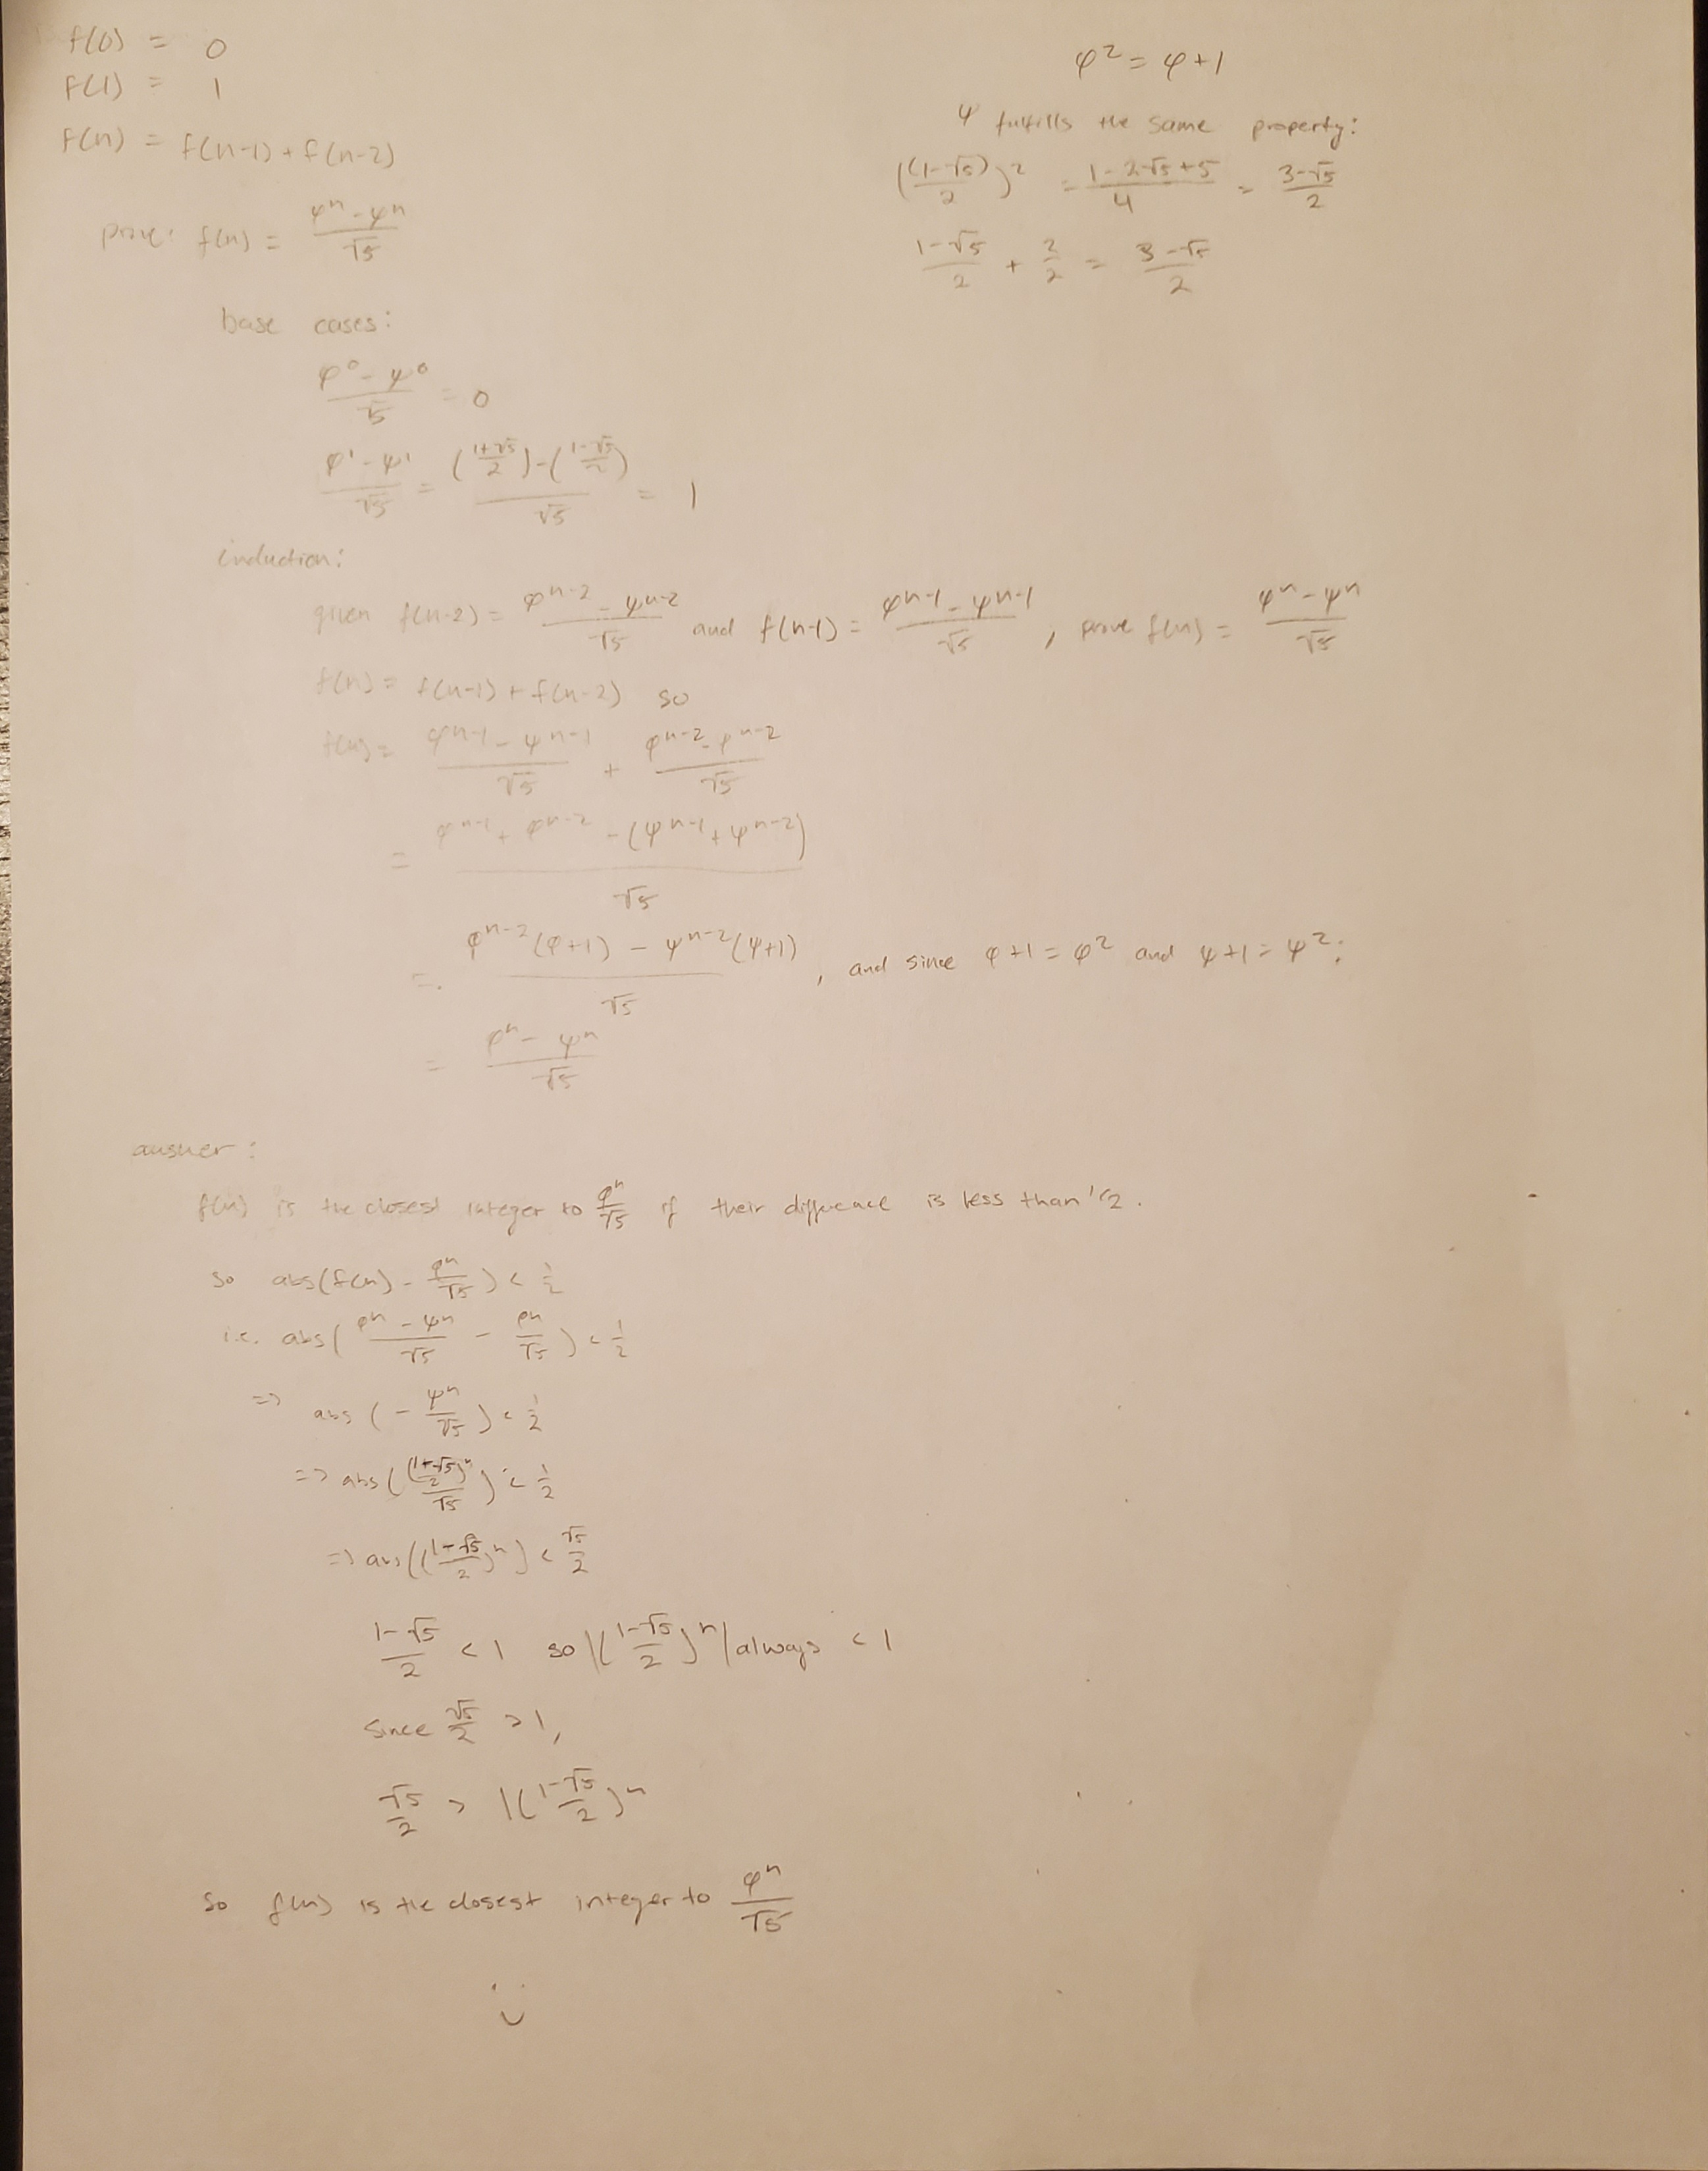 f(0) = 0
f(1) = 1
f(n) = f(n-1) + f(n-2)
prove: f(n) = (φ^n - ψ^n)/√5
φ^2 = φ+1
ψ fulfills the same property:
((1-√5)/2)^2 = (1-2√5+5)/4 = (3-√5)/2
(1-√5)/2 + 2/2 = (3-√5)/2
base cases:
(φ^0 - ψ^0)/√5 = 0
(φ^1 - ψ^1)/√5 = (((1+√5)/2) - ((1-√5)/2))/√5 = 1
induction:
given f(n-2) = (φ^(n-2) - ψ^(n-2))/√5 and f(n-1) = (φ^(n-1) - ψ^(n-1))/√5, prove f(n) = (φ^n - ψ^n)/√5
f(n) = f(n-1) + f(n-2) so
f(n) = (φ^(n-1) - ψ^(n-1))/√5 + (φ^(n-2) - φ^(n-2))/√5
= (φ^(n-1) + φ^(n-2) - (ψ^(n-1) + ψ^(n-2)))/√5
= (φ^(n-2)(φ+1) - ψ^(n-2)(ψ+1))/√5, and since φ+1 = φ^2 and ψ+1 = ψ^2:
= (φ^n - ψ^n)/√5
answer:
f(n) is the closest integer to φ^n/√5 if their difference is less than 1/2.
so abs(f(n) - φ^n/√5) < 1/2
i.e. abs((φ^n - ψ^n)/√5 - φ^n/√5) < 1/2
=> abs(-ψ^n/√5) < 1/2
=> abs(((1-√5)/2)^n/√5) < 1/2
=> abs(((1-√5)/2)^n) < √5/2
(1-√5)/2 < 1 so |((1-√5)/2)^n| always < 1
since √5/2 > 1,
√5/2 > |((1-√5)/2)^n
so f(n) is the closest integer to φ^n/√5
:)